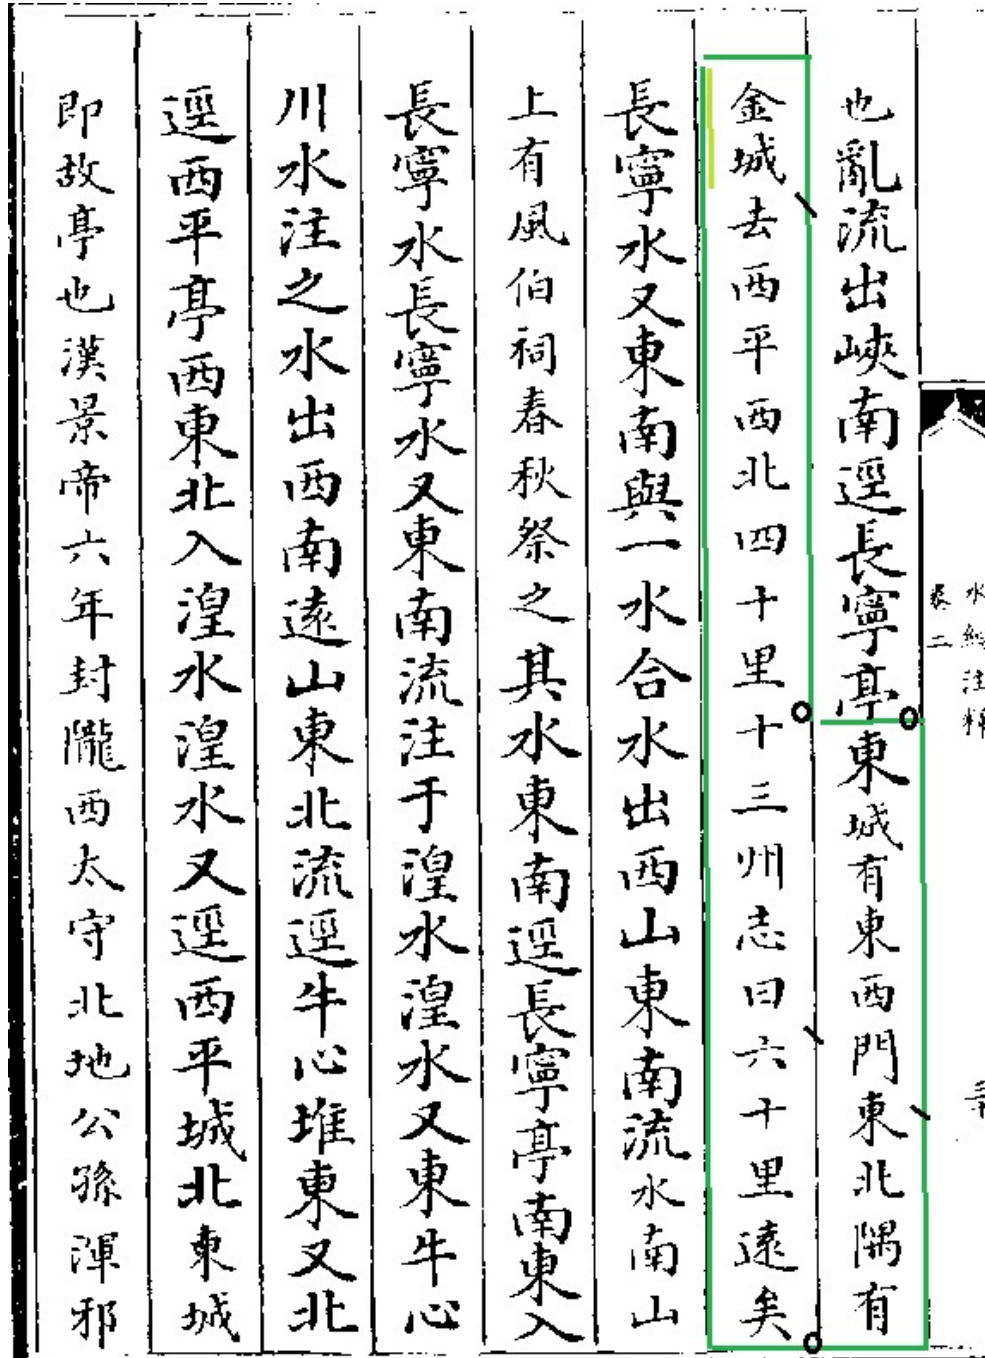 也亂流出峽南逕長寧亭東城有東西門東北隅有
金城去西平西北四十里十三州志曰六十里遠矣
長寧水又東南與一水合水出西山東南流水南山
上有風伯祠春秋祭之其水東南逕長寧亭南東入
長寧水長寧水又東南流注于湟水湟水又東牛心
川水注之水出西南遠山東北流逕牛心堆東又北
逕西平亭西東北入湟水湟水又逕西平城北東城
即故亭也漢景帝六年封隴西太守北地公孫渾邪
水經注釋
卷二